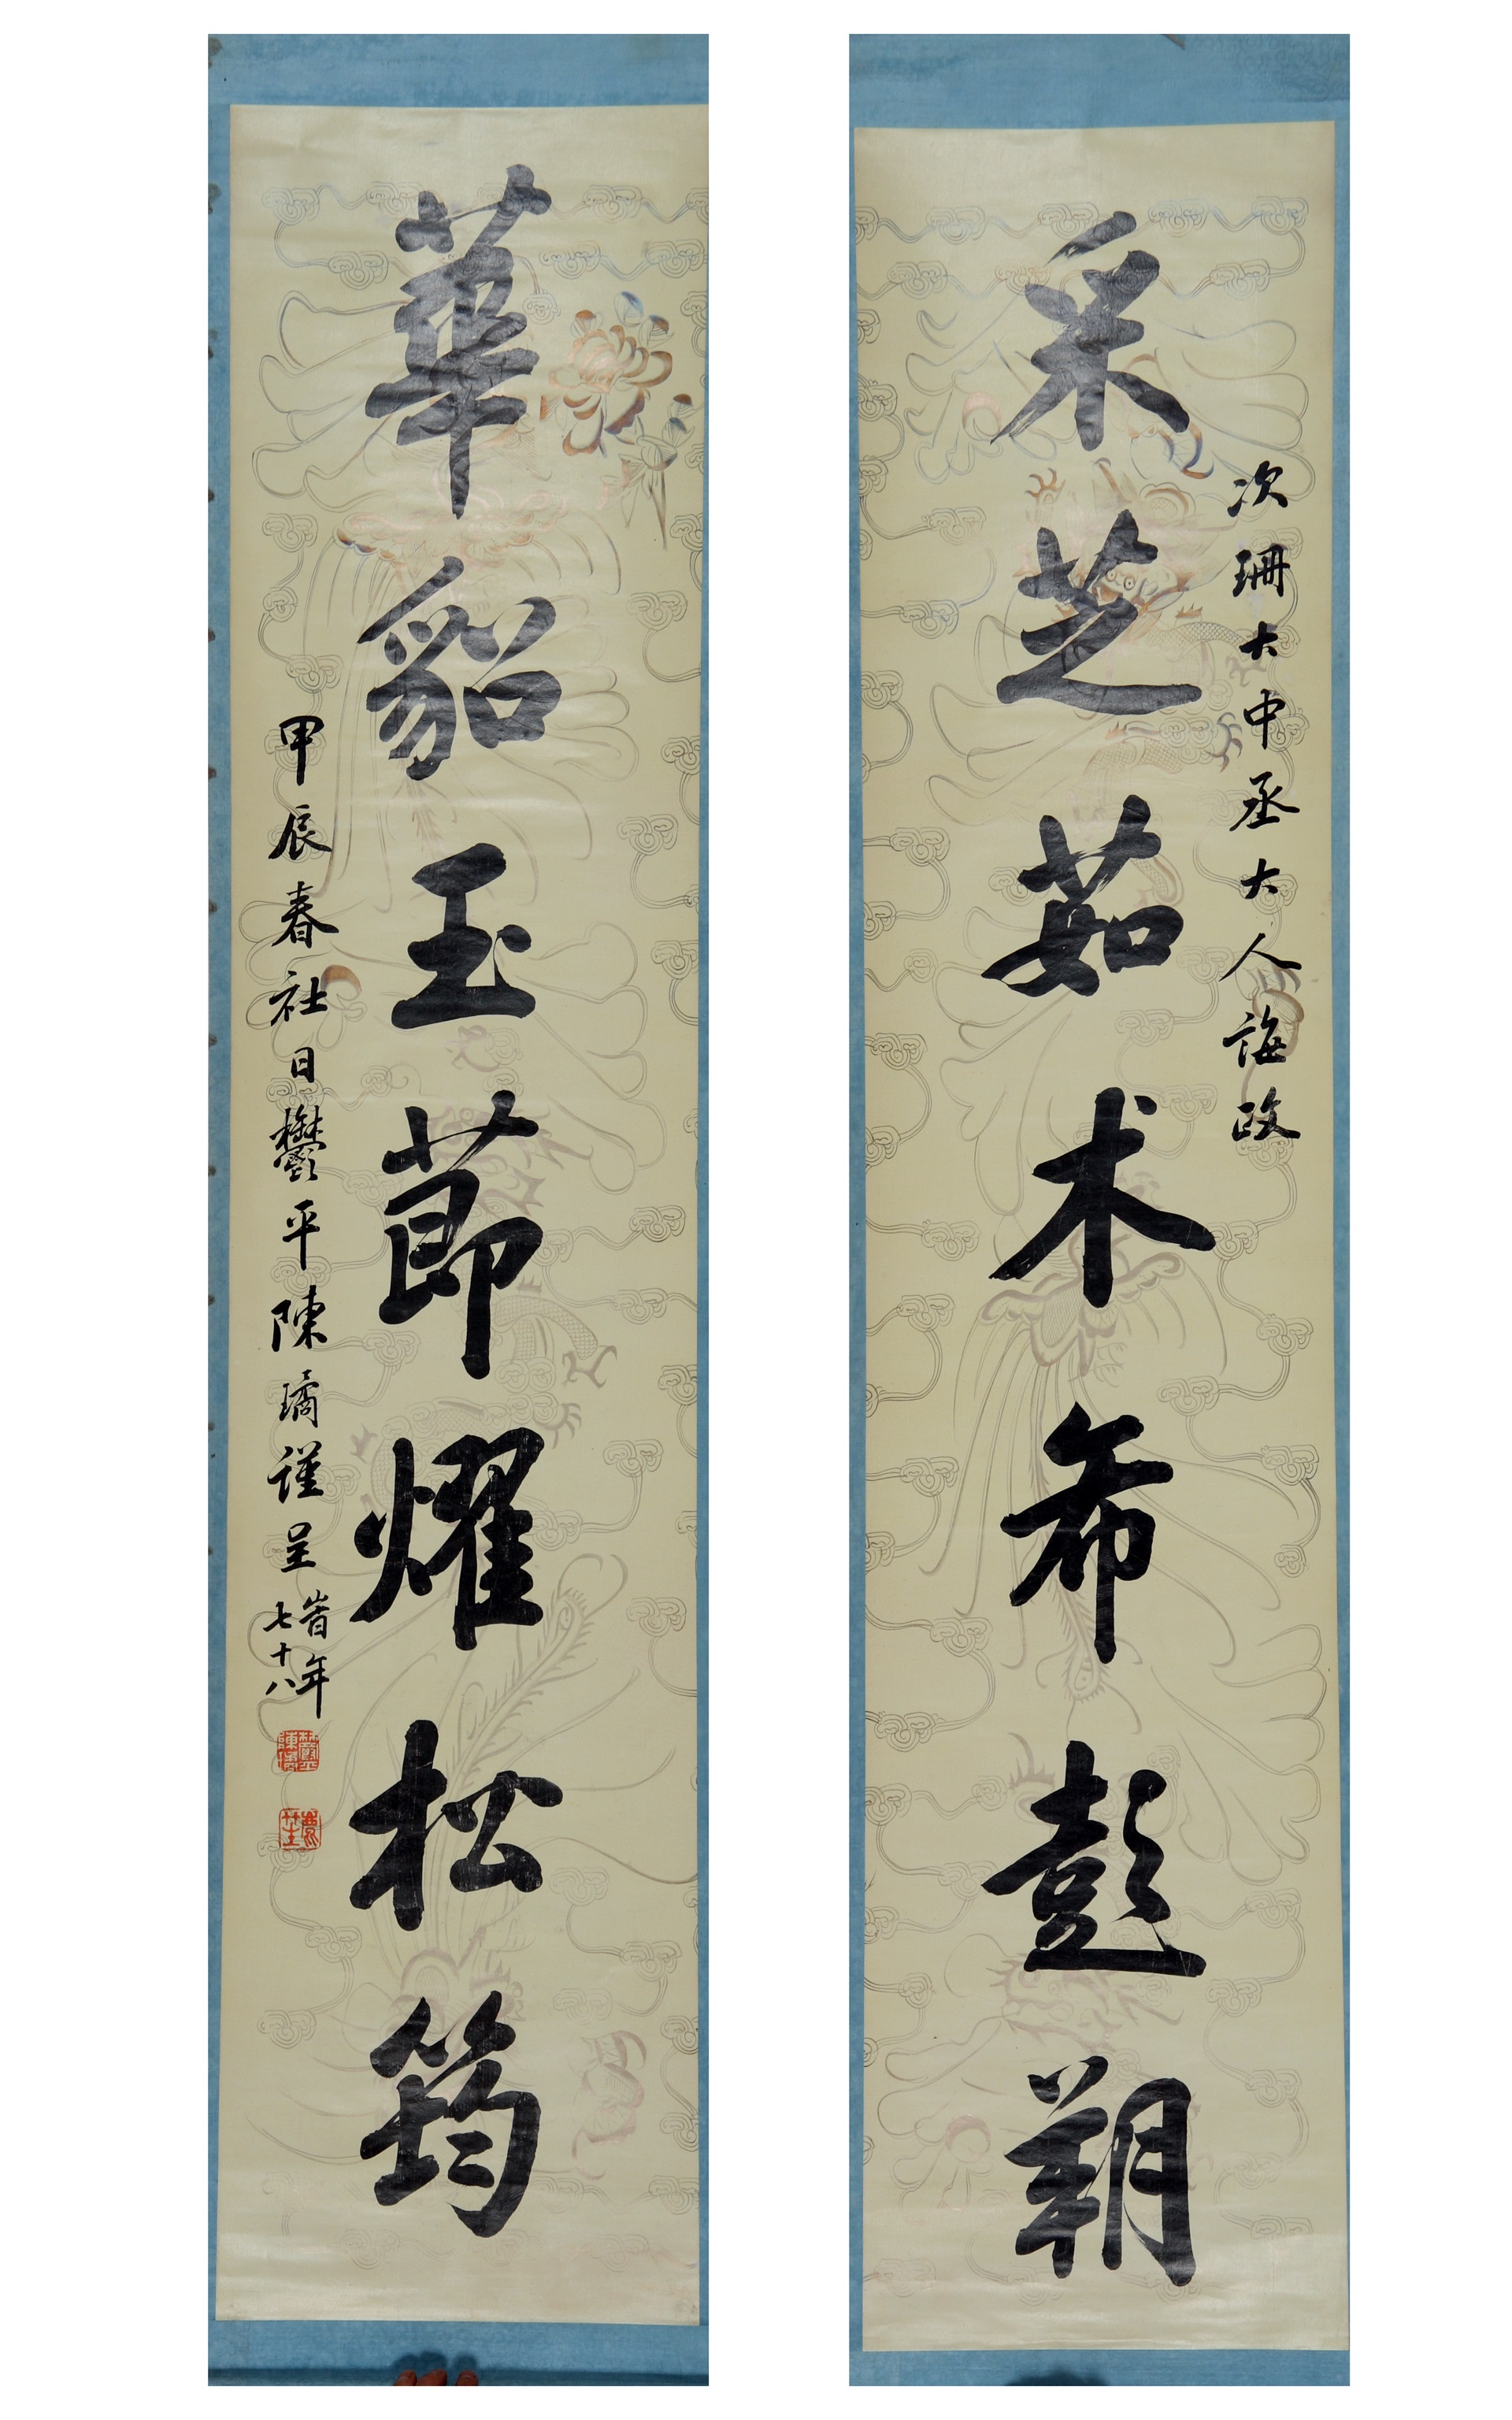 采芝茹术希彭朔
次珊大中丞大人誨政
華貂玉節耀松筠
甲辰春社日鬱平陳璚謹呈
時年
七十八